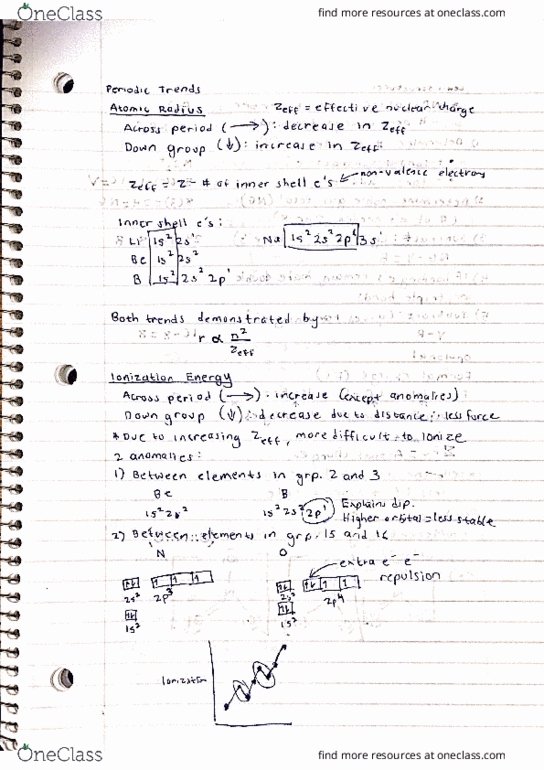 OneClass
find more resources at oneclass.com
Periodic Trends
Atomic Radius Zeff = effective nuclear charge
Across period (→): decrease in Zeff
Down group (↓): increase in Zeff
Zeff = Z - # of inner shell e's ← non-valence electrons
Inner shell e's:
Li 1s² 2s¹ Na 1s² 2s² 2p⁶ 3s¹
Be 1s² 2s²
B 1s² 2s² 2p¹
Both trends demonstrated by
r ∝ n²
Zeff
Ionization Energy
Across period (→): increase (except anomalies)
Down group (↓): decrease due to distance ∴ less force
* Due to increasing Zeff, more difficult to ionize
2 anomalies:
1) Between elements in grp. 2 and 3
Be B Explains dip.
1s² 2s² 1s² 2s² 2p¹ Higher orbital = less stable
2) Between elements in grp. 15 and 16
N O
extra e⁻ e⁻
repulsion
2s² 2p³ 2s² 2p⁴
1s² 1s²
Ionization
OneClass
find more resources at oneclass.com